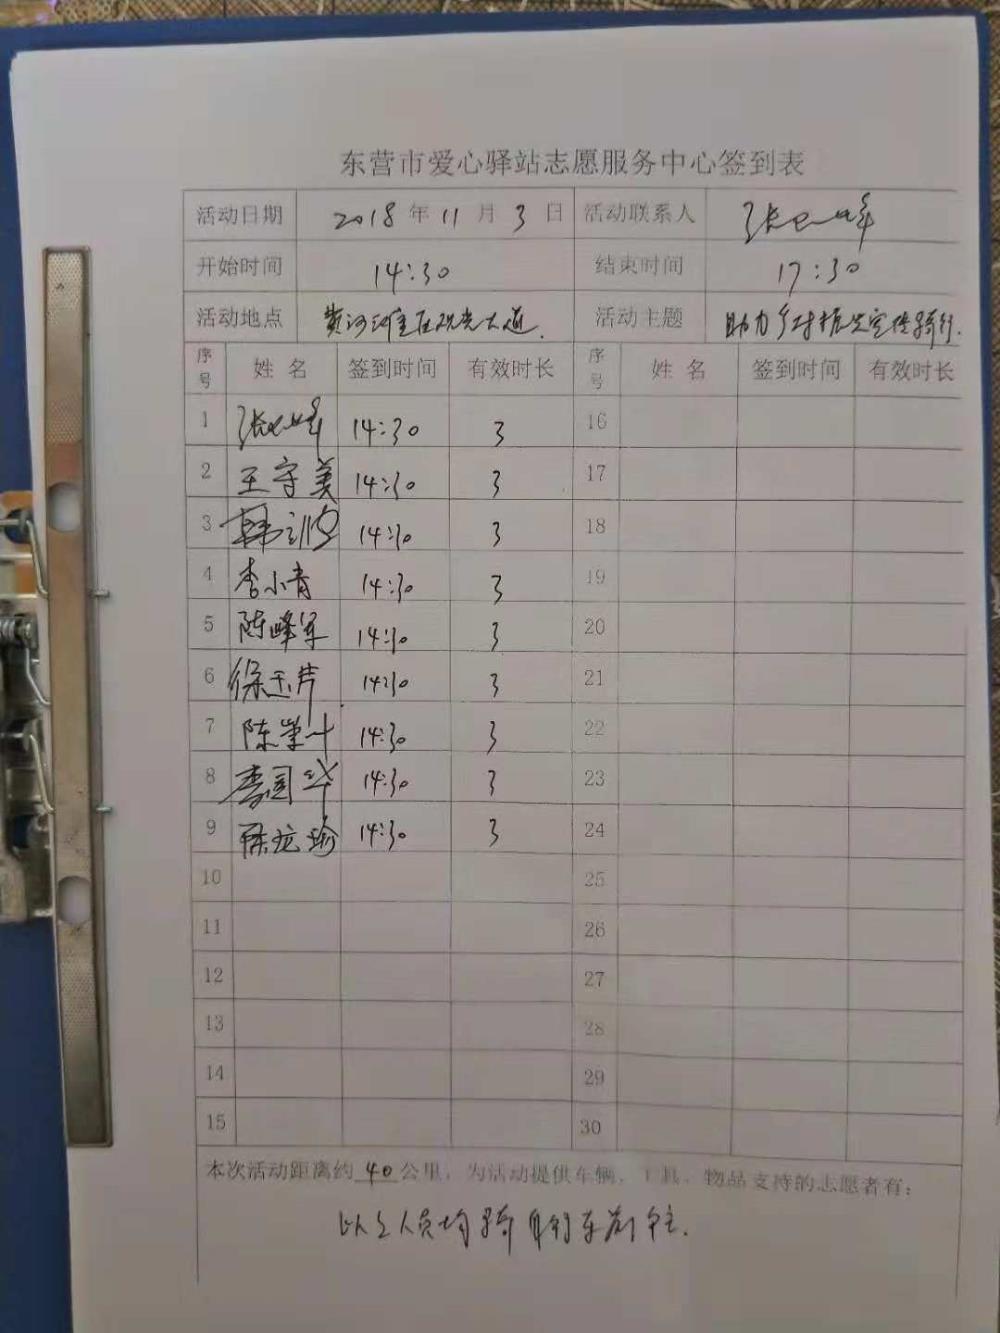 东营市爱心驿站志愿服务中心签到表
活动日期 2018 年 11 月 3 日 活动联系人
开始时间 14:30 结束时间 17:30
活动地点 黄河 观光大道 活动主题 助力乡村振兴宣传骑行.
序号 姓名 签到时间 有效时长 序号 姓名 签到时间 有效时长
1 14:30 3 16
2 王守美 14:30 3 17
3 14:30 3 18
4 李小青 14:30 3 19
5 陈峰军 14:30 3 20
6 徐玉芹 14:30 3 21
7 陈 14:30 3 22
8 李国华 14:30 3 23
9 14:30 3 24
10 25
11 26
12 27
13 28
14 29
15 30
本次活动距离约 40 公里，为活动提供车辆、工具、物品支持的志愿者有：
以上人员均骑自行车前往.